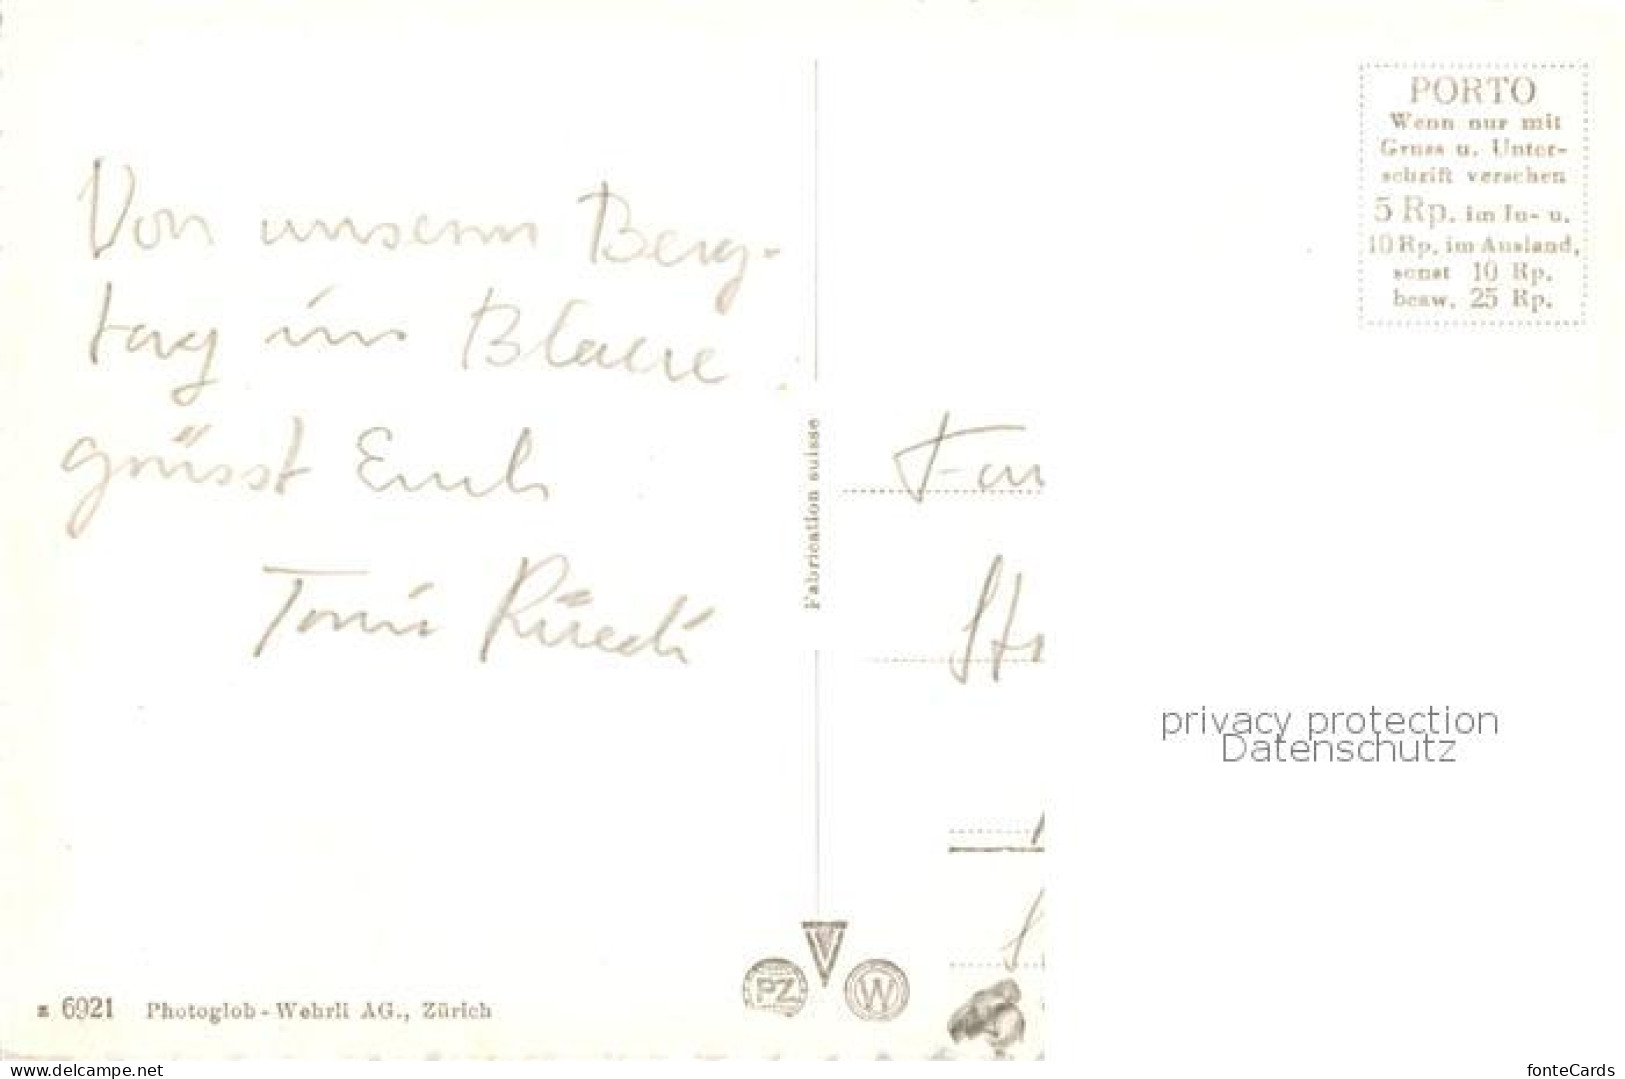 Von unserm Berg-
tag ins Blaue
grüsst Euch
Toni Rüedi
Fabrication suisse
PORTO
Wenn nur mit
Gruss u. Unter-
schrift versehen
5 Rp. im In- u.
10 Rp. im Ausland,
sonst 10 Rp.
bezw. 25 Rp.
Fam
Str
privacy protection
Datenschutz
PZ
W
z 6921 Photoglob-Wehrli AG., Zürich
www.delcampe.net
fonteCards